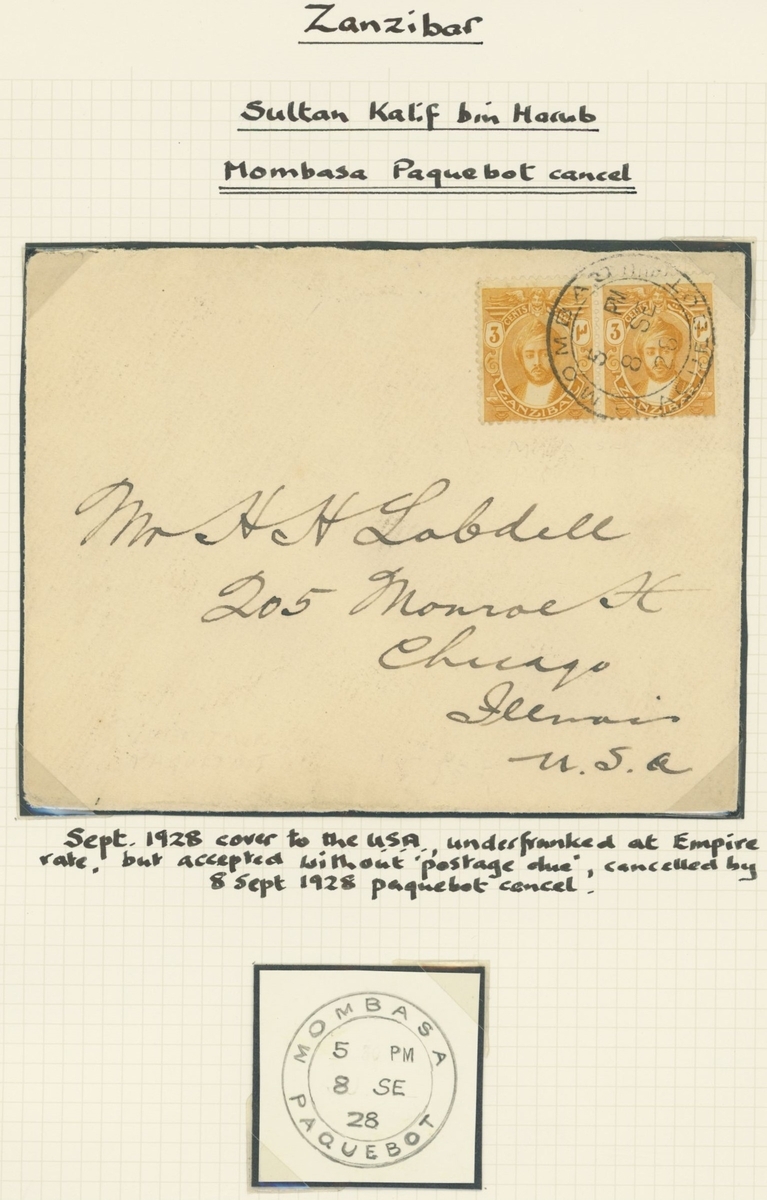 Zanzibar
Sultan Kalif bin Harub
Mombasa Paquebot cancel
3 CENTS 3 CENTS
ZANZIBAR ZANZIBAR
MOMBASA
5 PM
8 SE
28
PAQUEBOT
Mr H H Lobdell
205 Monroe St
Chicago
Illinois
U.S.A
Sept. 1928 cover to the USA, underfranked at Empire
rate, but accepted without 'postage due', cancelled by
8 Sept 1928 paquebot cancel.
MOMBASA
5 PM
8 SE
28
PAQUEBOT